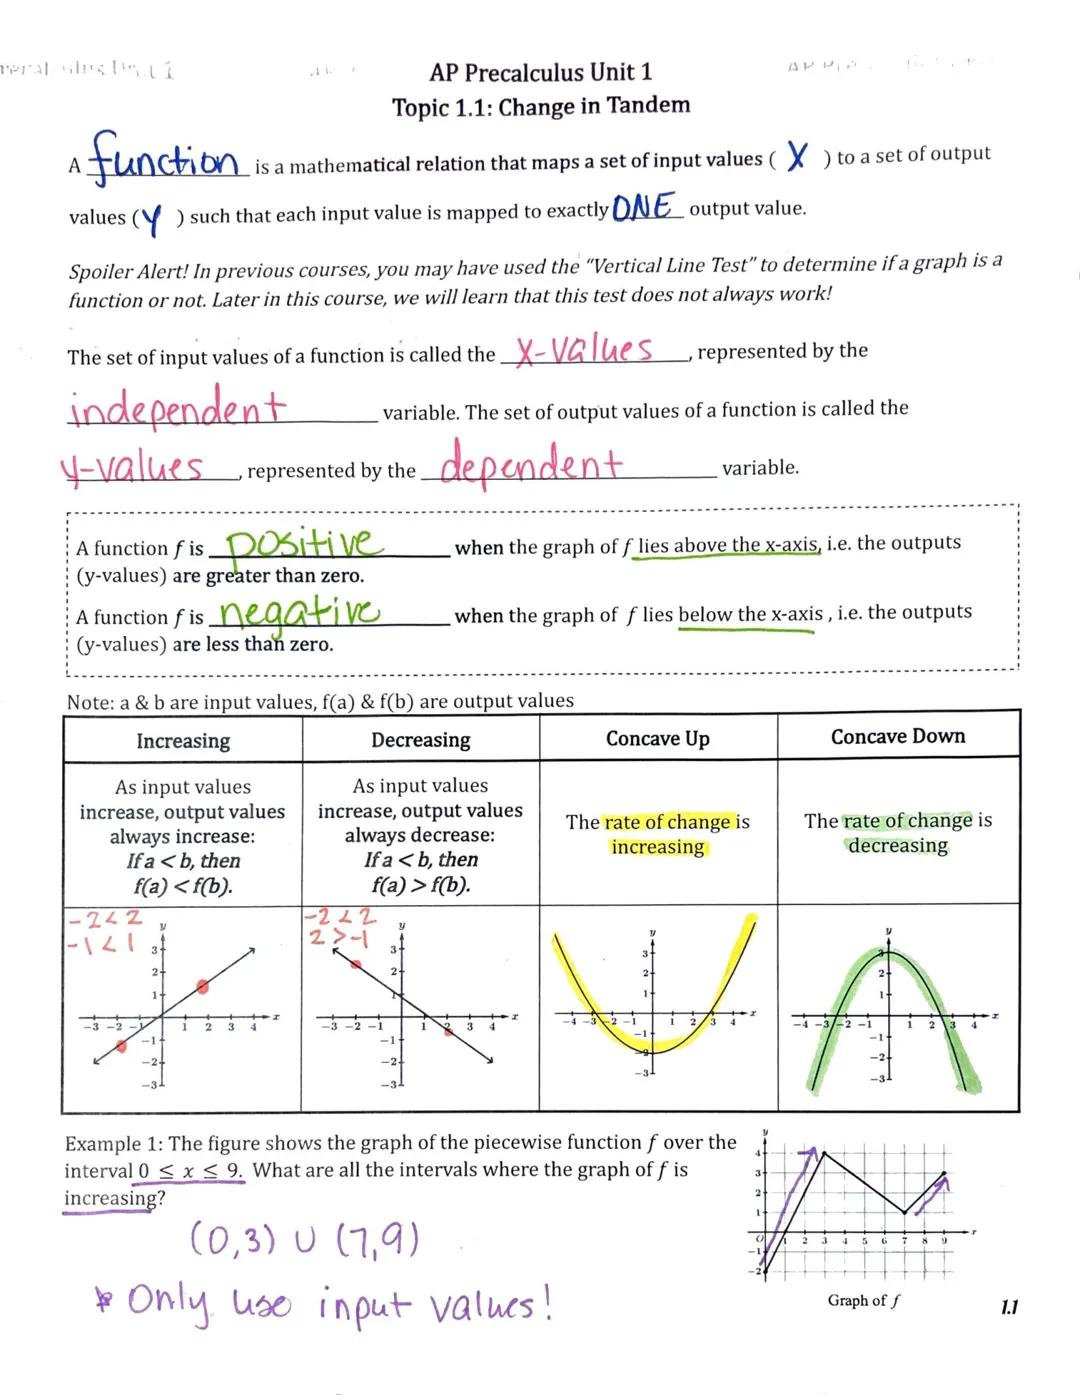 AP Precalculus Unit 1
Topic 1.1: Change in Tandem
A function is a mathematical relation that maps a set of input values ( X ) to a set of output
values ( Y ) such that each input value is mapped to exactly ONE output value.
Spoiler Alert! In previous courses, you may have used the "Vertical Line Test" to determine if a graph is a
function or not. Later in this course, we will learn that this test does not always work!
The set of input values of a function is called the x-values, represented by the
independent variable. The set of output values of a function is called the
y-values, represented by the dependent variable.
A function f is positive when the graph of f lies above the x-axis, i.e. the outputs
(y-values) are greater than zero.
A function f is negative when the graph of f lies below the x-axis , i.e. the outputs
(y-values) are less than zero.
Note: a & b are input values, f(a) & f(b) are output values
Increasing
As input values
increase, output values
always increase:
If a < b, then
f(a) < f(b).
-2<2
-1<1
y
3
2
1
-3 -2 -1 1 2 3 4 x
-1
-2
-3
Decreasing
As input values
increase, output values
always decrease:
If a < b, then
f(a) > f(b).
-2<2
2>-1
y
3
2
1
-3 -2 -1 1 2 3 4 x
-1
-2
-3
Concave Up
The rate of change is
increasing
y
3
2
1
-4 -3 -2 -1 1 2 3 4 x
-1
-2
-3
Concave Down
The rate of change is
decreasing
y
3
2
1
-4 -3 -2 -1 1 2 3 4 x
-1
-2
-3
Example 1: The figure shows the graph of the piecewise function f over the
interval 0 ≤ x ≤ 9. What are all the intervals where the graph of f is
increasing?
(0,3) ∪ (7,9)
* Only use input values!
y
4
3
2
1
O 1 2 3 4 5 6 7 8 9 x
-1
-2
Graph of f
1.1